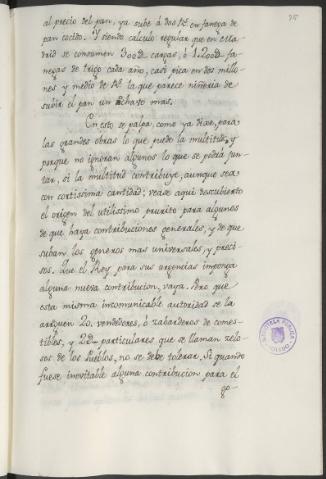 al precio del pan, ya sube à dos r.s en fanega de
pan cocido. Y siendo calculo regular que en Ma
drid se consumen 300D cargas, ò 1.200D fa
negas de trigo cada año, casi pica en dos millo
nes y medio de r.s la que parece niñeria de
subir el pan un ochavo mas.
En esto se palpa, como ya dixe, para
las grandes obras lo que puede la multitud, y
porque no ignoran algunos lo que se podia jun
tar, si la multitud contribuye, aunque sea
con cortissima cantidad; vease aqui descubierto
el origen del utilissimo prurito para algunos
de que haya contribuciones generales, y de que
suban los generos mas universales, y preci
sos. Que el Rey para sus urgencias imponga
alguna nueva contribucion, vaya. Pero que
esta misma incomunicable autoridad se la
arroguen 20. vendedores, ò zabarderos de comes
tibles, y 2D particulares que se llaman zela
sos de los Pueblos, no se debe tolerar. Si quando
fuese inevitable alguna contribucion para el
BIBLIOTECA PUBLICA
TOLEDO